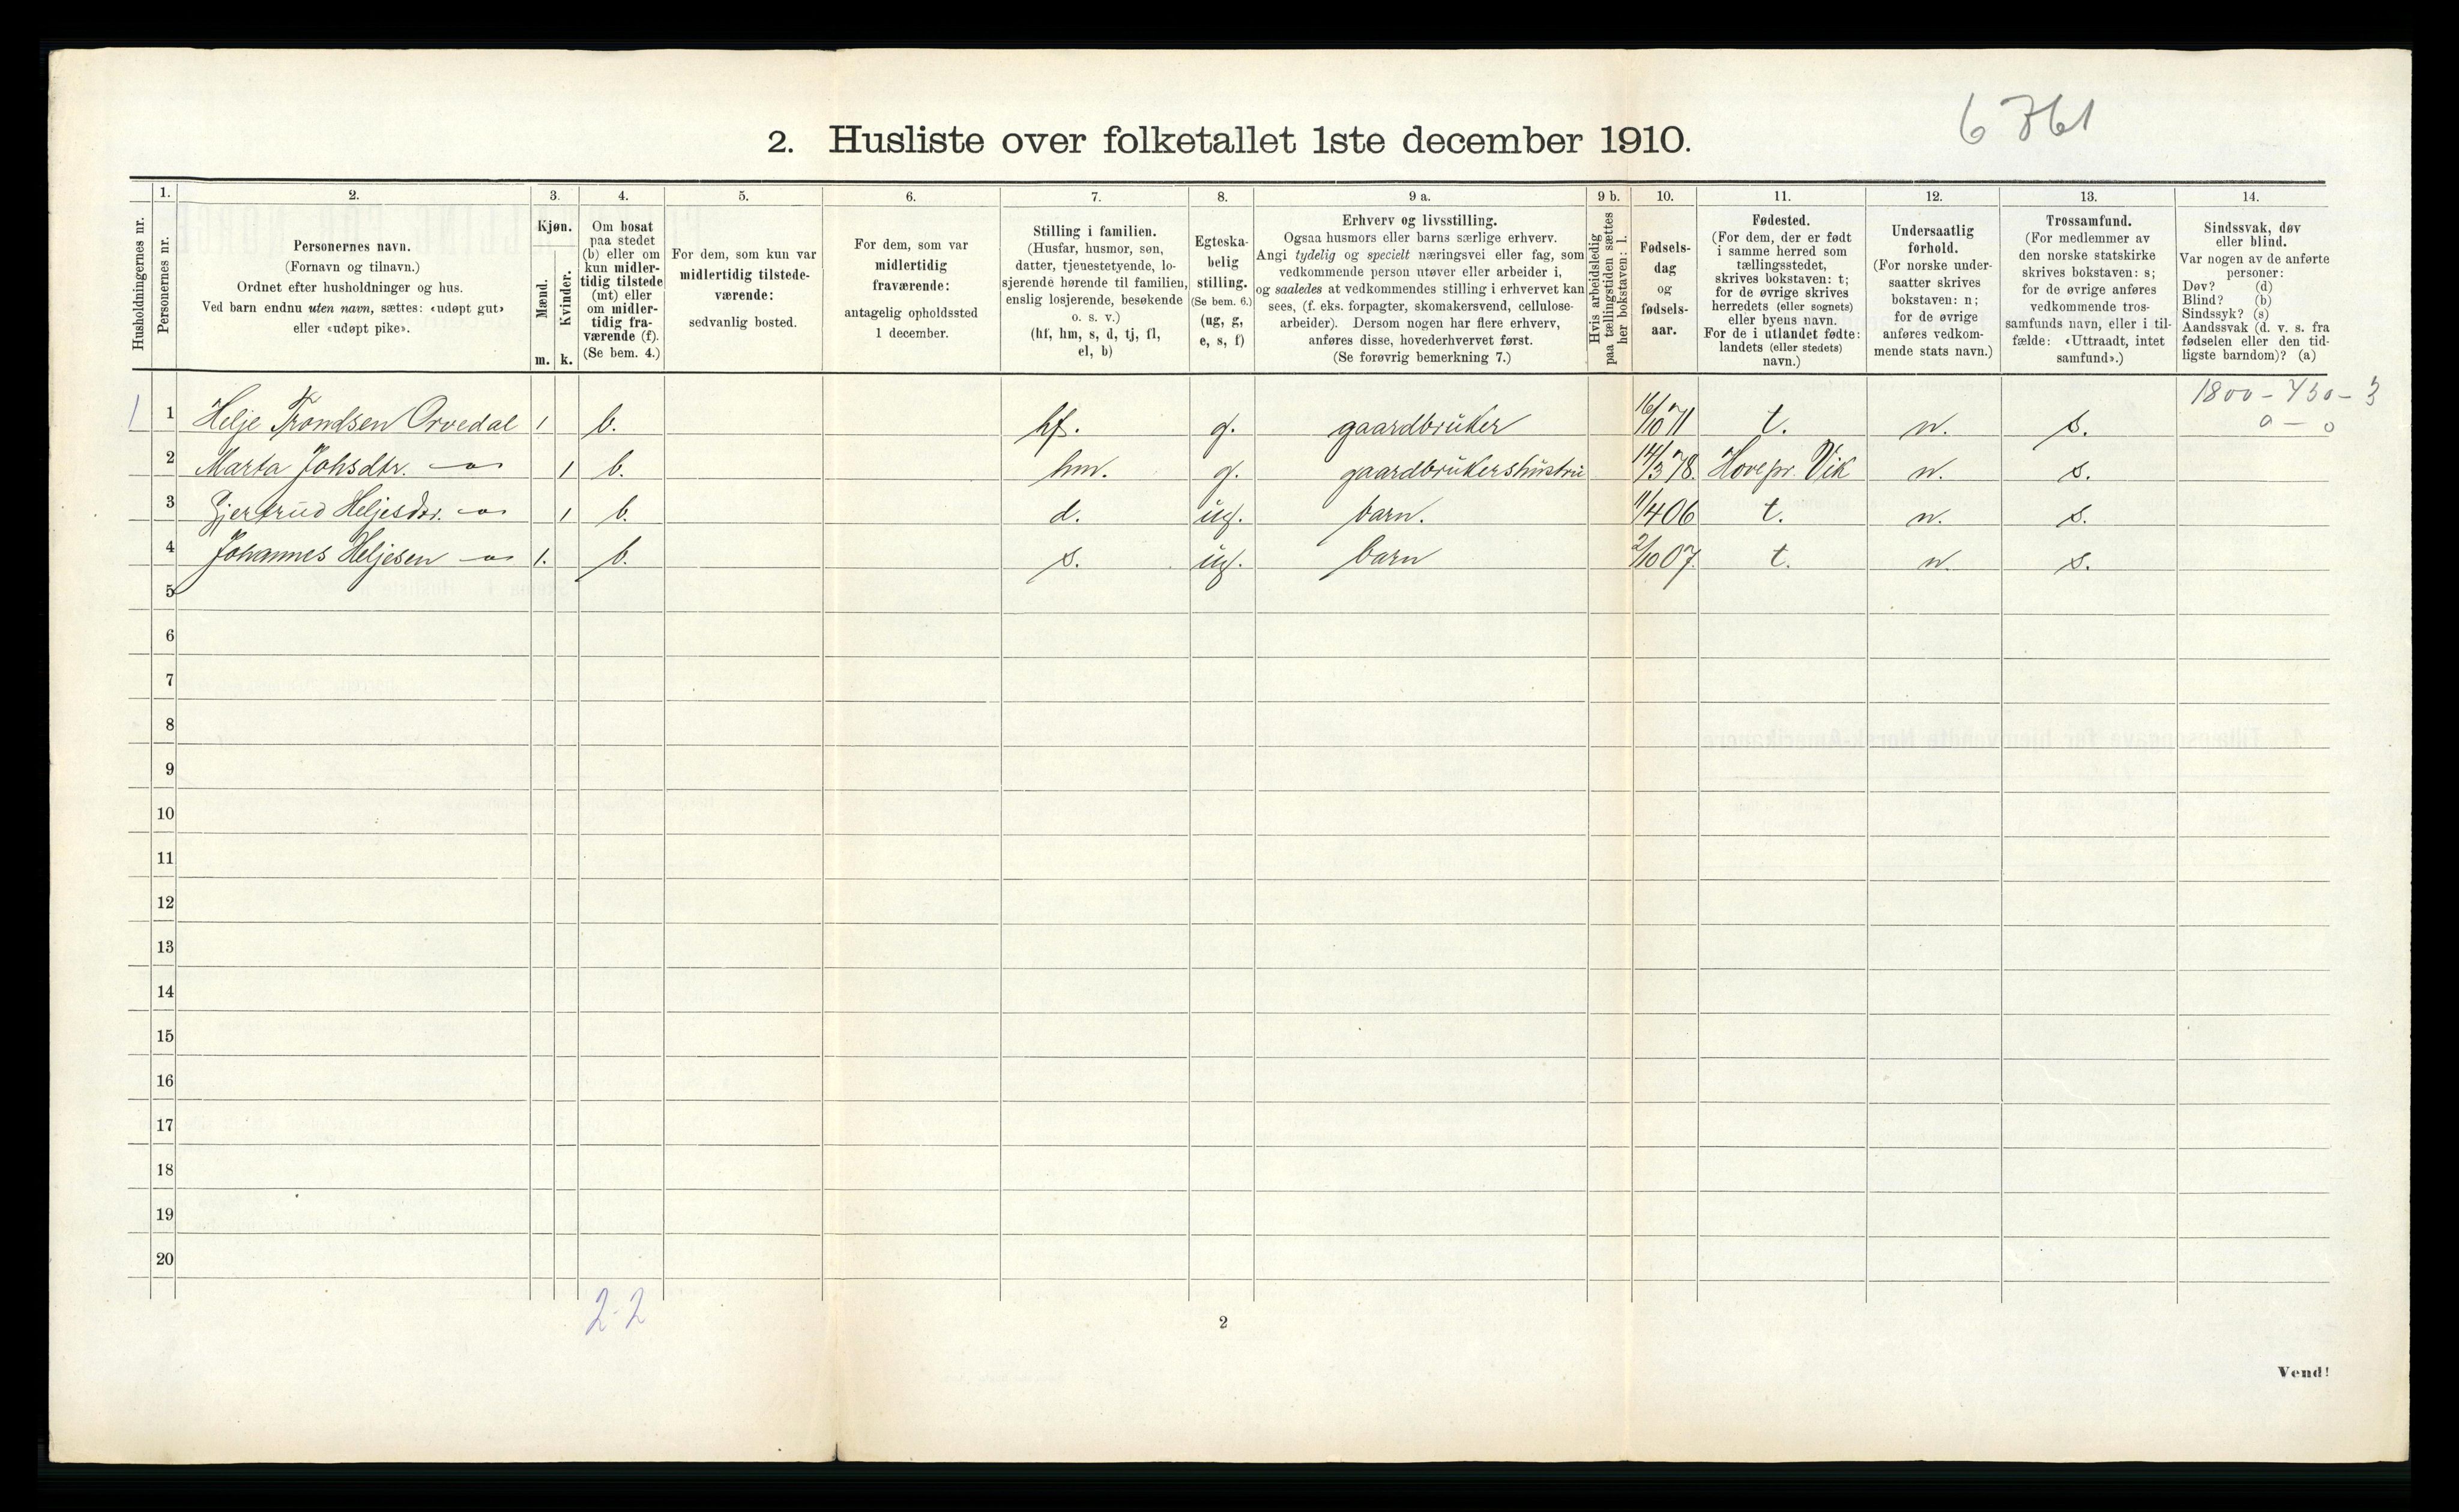 6 761
2. Husliste over folketallet 1ste december 1910.
Husholdningernes nr.
1.
Personernes nr.
2.
Personernes navn.
(Fornavn og tilnavn.)
Ordnet efter husholdninger og hus.
Ved barn endnu uten navn, sættes: «udøpt gut»
eller «udøpt pike».
3.
Kjøn.
Mænd.
Kvinder.
m. k.
4.
Om bosat
paa stedet
(b) eller om
kun midler-
tidig tilstede
(mt) eller
om midler-
tidig fra-
værende (f).
(Se bem. 4.)
5.
For dem, som kun var
midlertidig tilstede-
værende:
sedvanlig bosted.
6.
For dem, som var
midlertidig
fraværende:
antagelig opholdssted
1 december.
7.
Stilling i familien.
(Husfar, husmor, søn,
datter, tjenestetyende, lo-
sjerende hørende til familien,
enslig losjerende, besøkende
o. s. v.)
(hf, hm, s, d, tj, fl,
el, b)
8.
Egteska-
belig
stilling.
(Se bem. 6.)
(ug, g,
e, s, f)
9 a.
Erhverv og livsstilling.
Ogsaa husmors eller barns særlige erhverv.
Angi tydelig og specielt næringsvei eller fag, som
vedkommende person utøver eller arbeider i,
og saaledes at vedkommendes stilling i erhvervet kan
sees, (f. eks. forpagter, skomakersvend, cellulose-
arbeider). Dersom nogen har flere erhverv,
anføres disse, hovederhvervet først.
(Se forøvrig bemerkning 7.)
9 b.
Hvis arbeidsledig
paa tællingstiden sættes
her bokstaven: l.
10.
Fødsels-
dag
og
fødsels-
aar.
11.
Fødested.
(For dem, der er født
i samme herred som
tællingsstedet,
skrives bokstaven: t;
for de øvrige skrives
herredets (eller sognets)
eller byens navn.
For de i utlandet fødte:
landets (eller stedets)
navn.)
12.
Undersaatlig
forhold.
(For norske under-
saatter skrives
bokstaven: n;
for de øvrige
anføres vedkom-
mende stats navn.)
13.
Trossamfund.
(For medlemmer av
den norske statskirke
skrives bokstaven: s;
for de øvrige anføres
vedkommende tros-
samfunds navn, eller i til-
fælde: «Uttraadt, intet
samfund».)
14.
Sindssvak, døv
eller blind.
Var nogen av de anførte
personer:
Døv? (d)
Blind? (b)
Sindssyk? (s)
Aandssvak (d. v. s. fra
fødselen eller den tid-
ligste barndom)? (a)
1800 - 450 - 3
0 - 0
1 1 Helje Trondsen Orvedal 1 b. hf. g. gaardbruker 16/10 71 t. n. s.
2 Marta Johsdtr. -"- 1 b. hm. g. gaardbrukershustru 14/3 78. Hove pr. Vik n. s.
3 Gjertrud Heljesdtr. -"- 1 b. d. ug. barn. 11/4 06 t. n. s.
4 Johannes Heljesen -"- 1. b. s. ug. barn 2/10 07. t. n. s.
5
6
7
8
9
10
11
12
13
14
15
16
17
18
19
20
2-2
2
Vend!